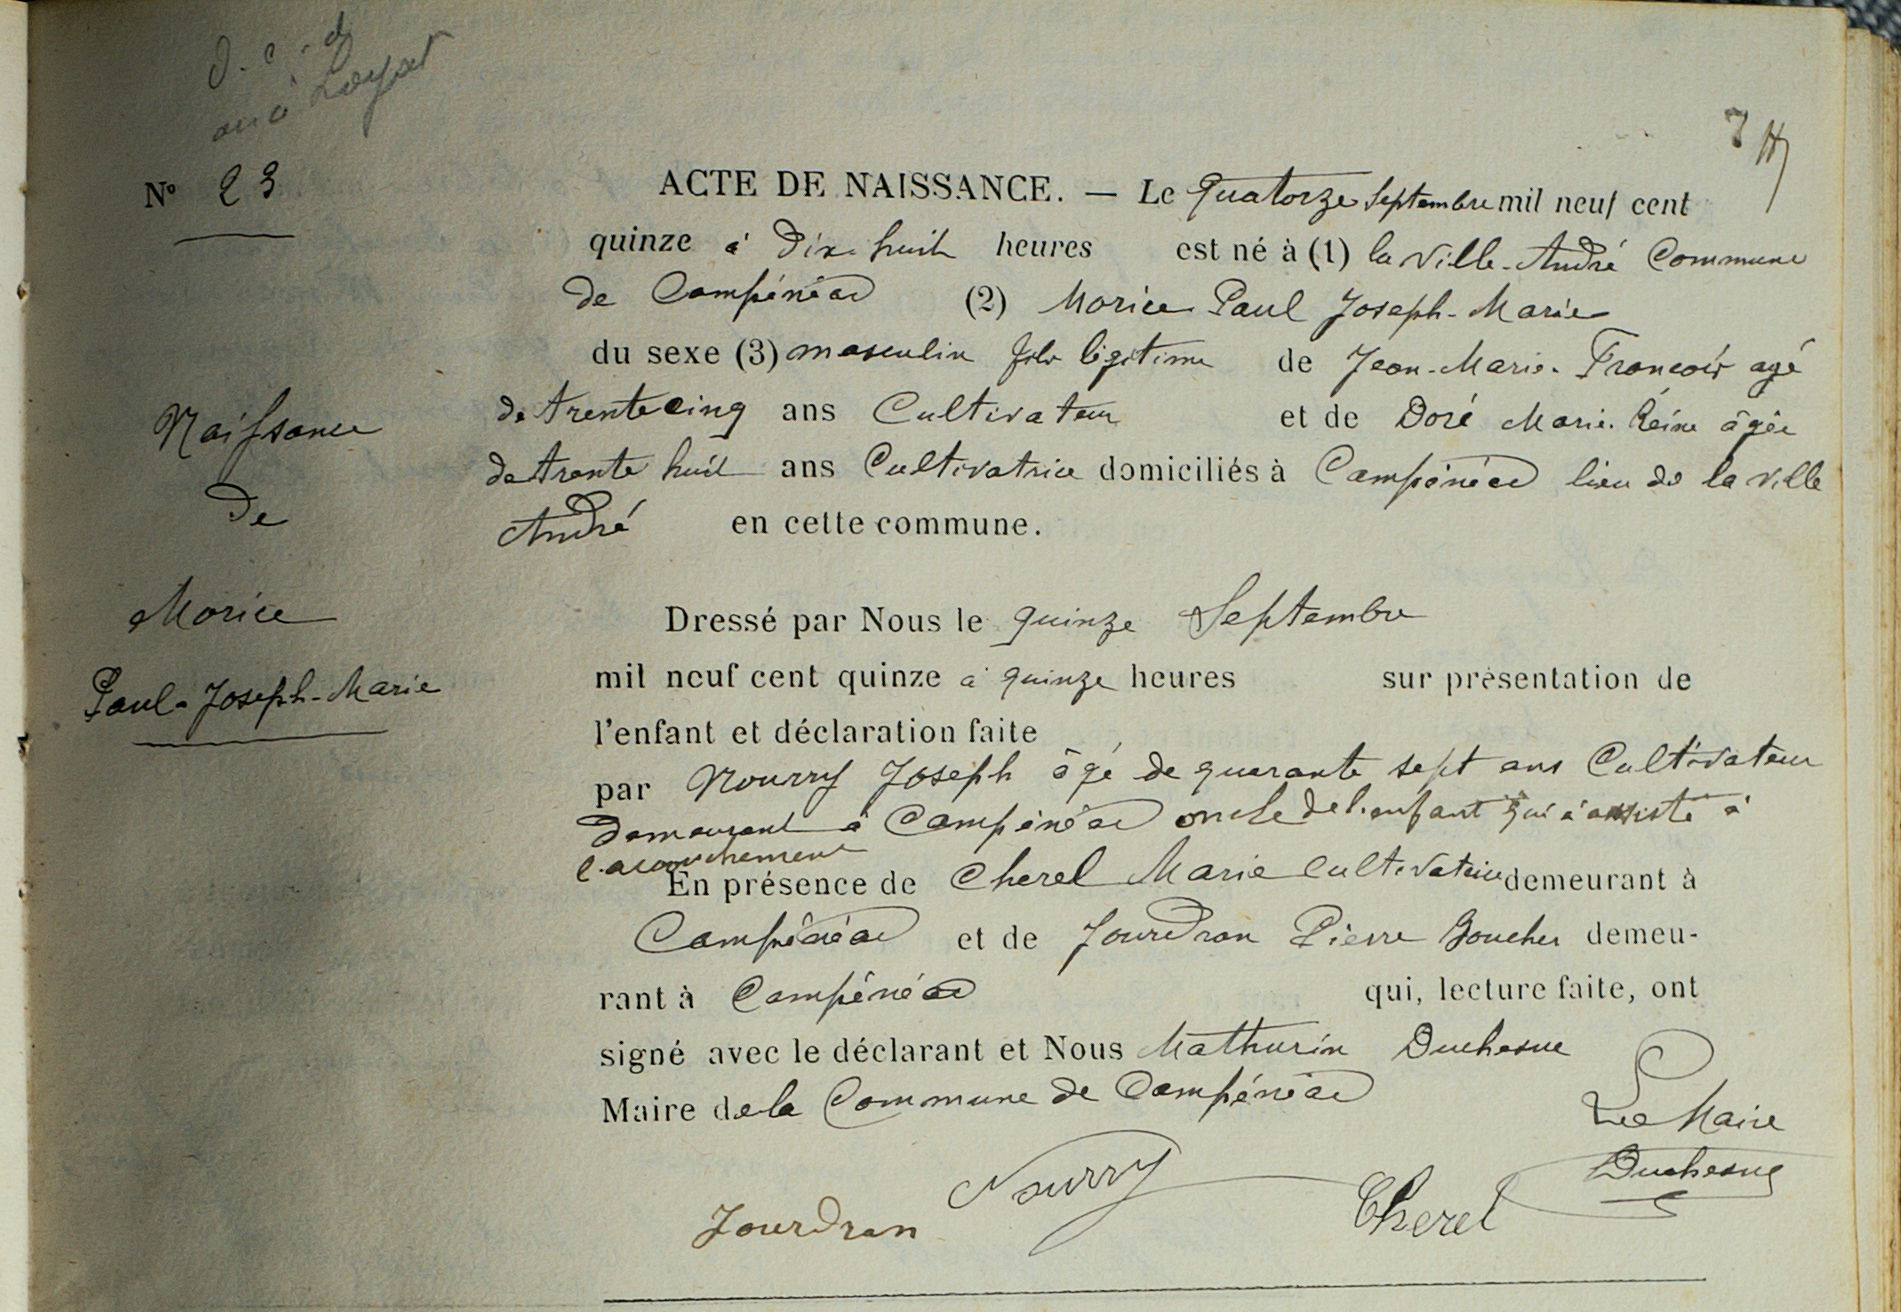 à Loyat
7
N° 23
ACTE DE NAISSANCE. — Le quatorze Septembre mil neuf cent
quinze à Dix-huit heures est né à (1) la Ville-André Commune
de Campénéac (2) Morice Paul Joseph-Marie
du sexe (3) masculin fils légitime de Jean-Marie-François agé
de trente cinq ans Cultivateur et de Doré Marie-Reine âgée
de trente huit ans Cultivatrice domiciliés à Campénéac lieu de la ville
André en cette commune.
Naissance
De
Morice
Paul-Joseph-Marie
Dressé par Nous le quinze Septembre
mil neuf cent quinze à quinze heures sur présentation de
l'enfant et déclaration faite
par Nourry Joseph âgé de quarante sept ans Cultivateur
demeurant à Campénéac oncle de l'enfant qui à assisté à
l'accouchement
En présence de Cherel Marie Cultivatrice demeurant à
Campénéac et de Jourdran Pierre Boucher demeu-
rant à Campénéac qui, lecture faite, ont
signé avec le déclarant et Nous Mathurin Duchesne
Maire de la Commune de Campénéac
Le Maire
Duchesne
Jourdran Nourry Cherel